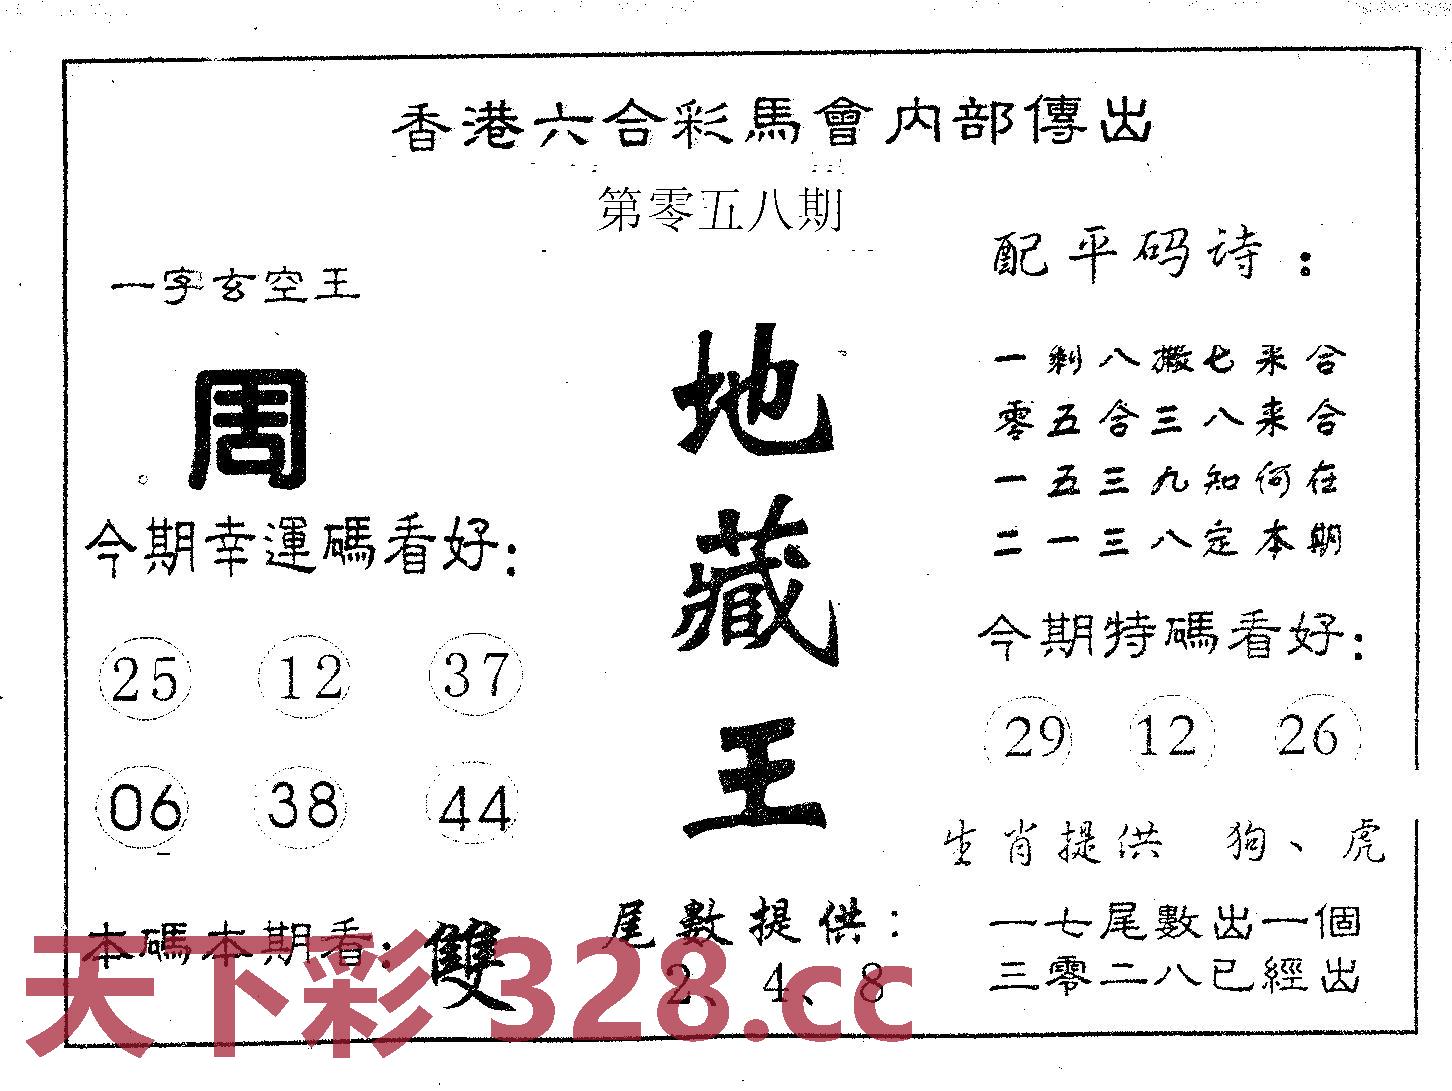 香港六合彩馬會内部傳出
第零五八期
一字玄空王
周
今期幸運碼看好:
25 12 37
06 38 44
本碼本期看: 雙
地藏王
尾數提供:
2、4、8
配平码诗:
一剩八搬七来合
零五合三八来合
一五三九知何在
二一三八定本期
今期特碼看好:
29 12 26
生肖提供 狗、虎
一七尾數出一個
三零二八已經出
天下彩 328.cc